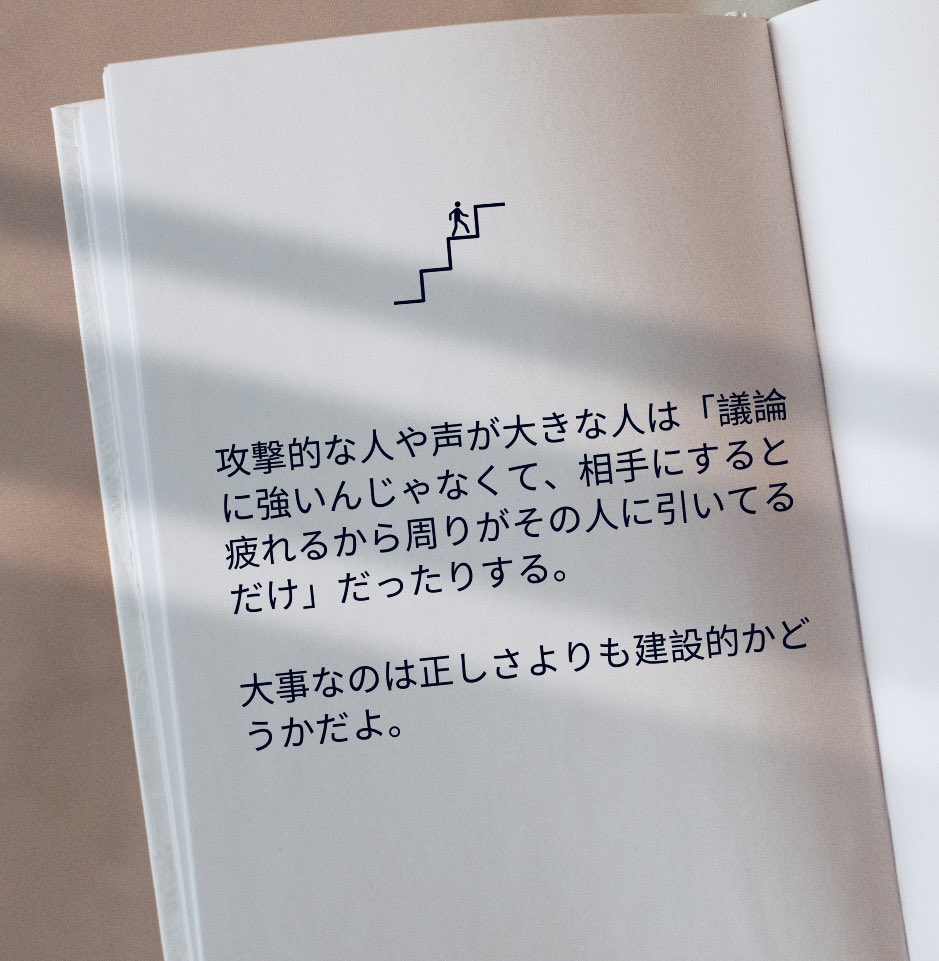 攻撃的な人や声が大きな人は「議論
に強いんじゃなくて、相手にすると
疲れるから周りがその人に引いてる
だけ」だったりする。
大事なのは正しさよりも建設的かど
うかだよ。